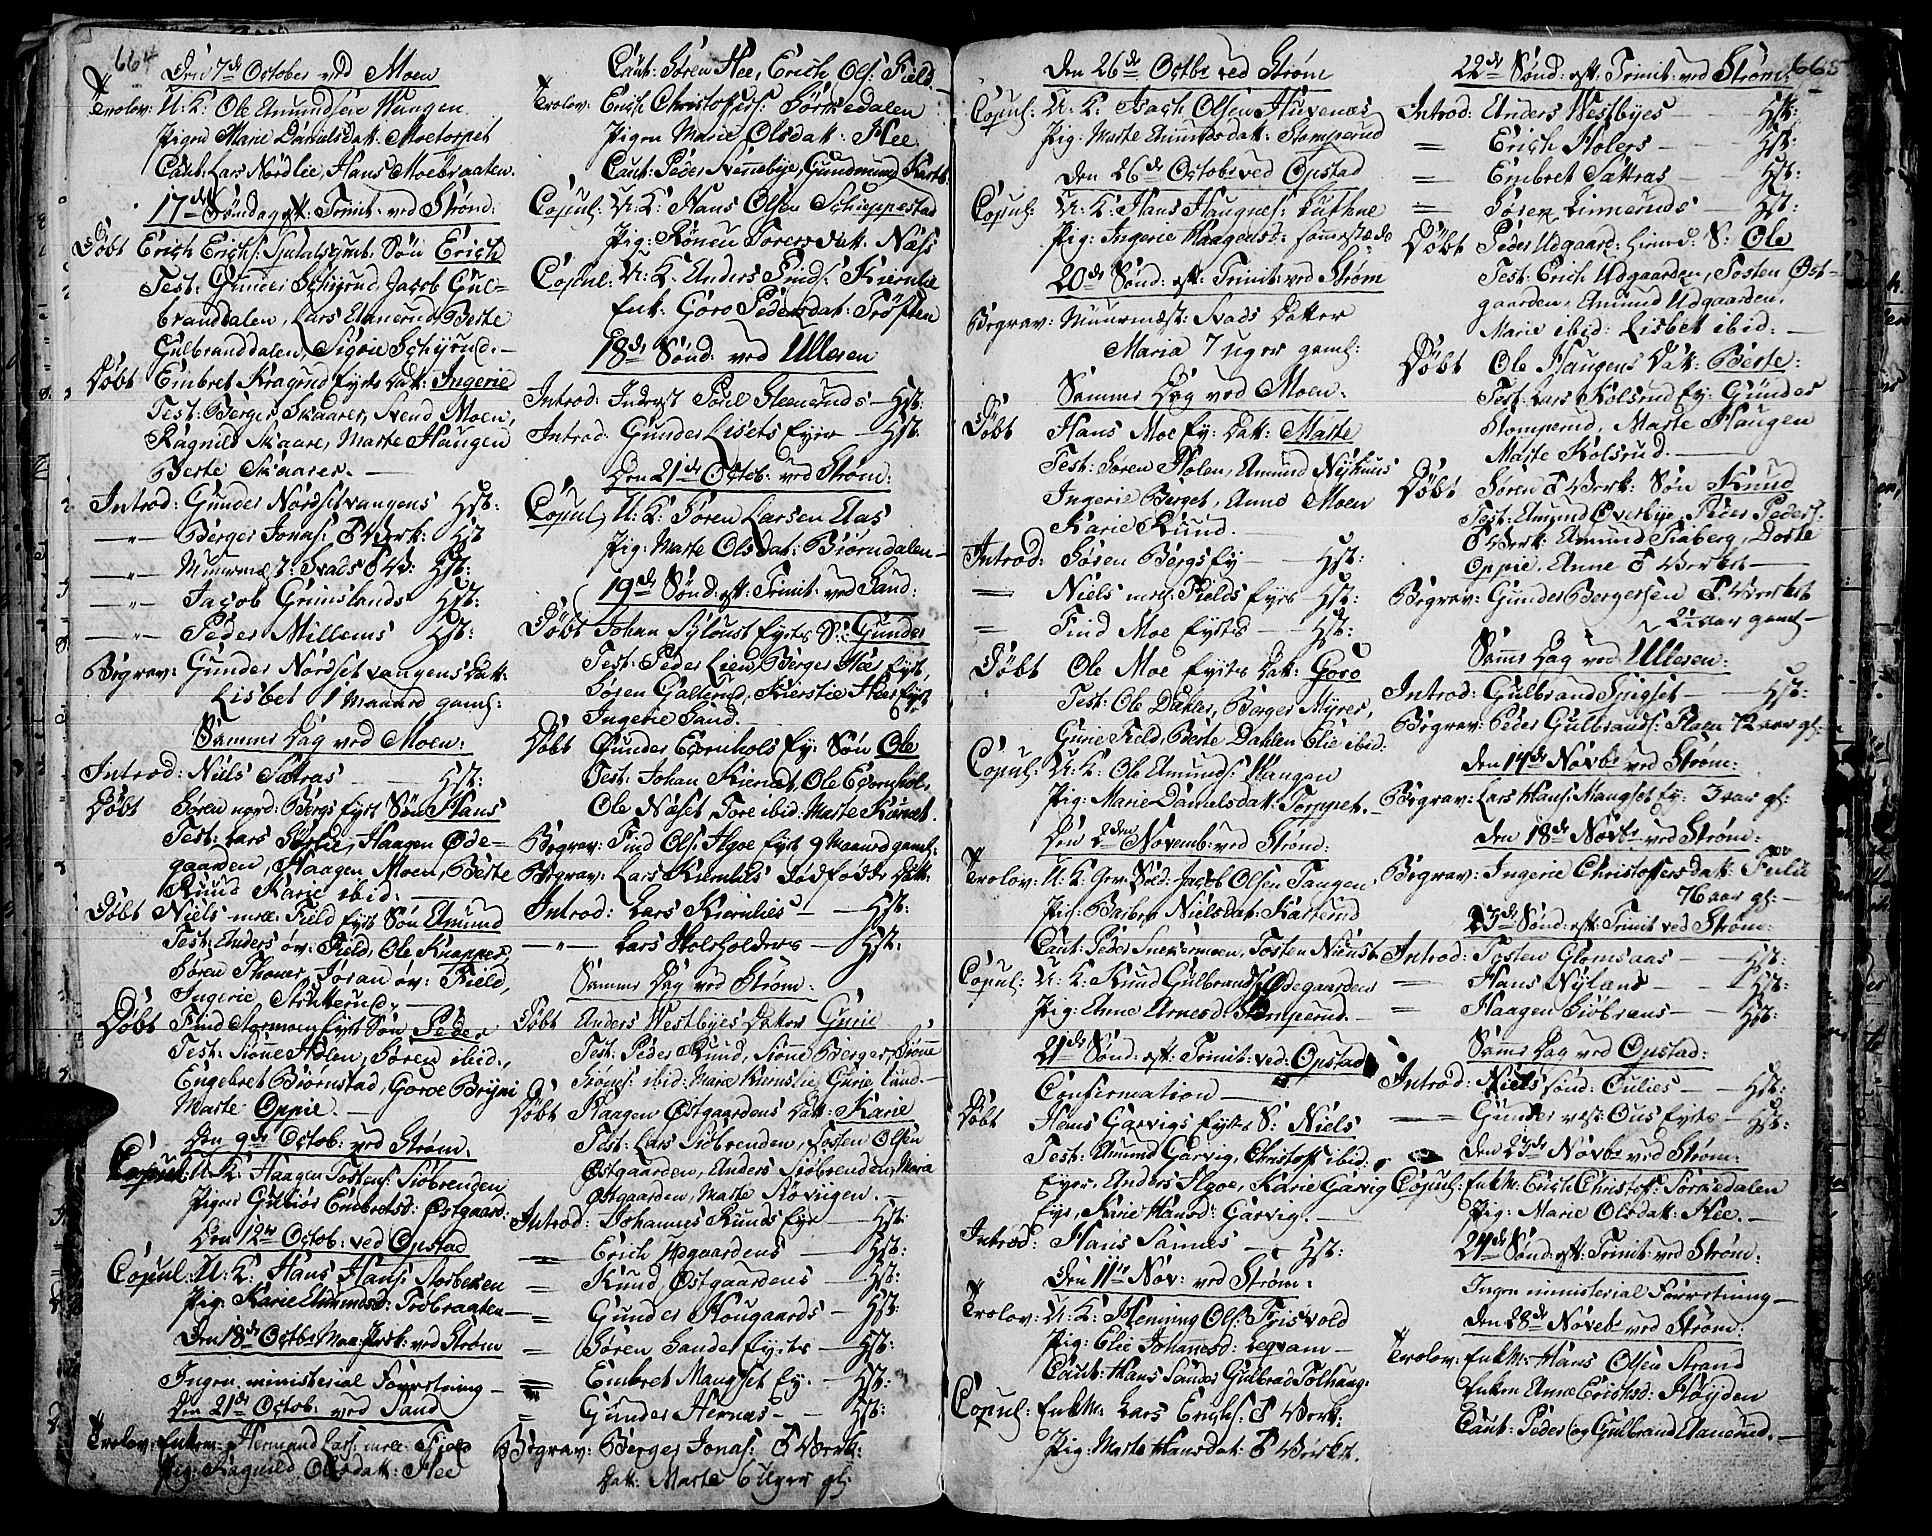 664
Den 7de October ved Moen
Trolov: U: K: Ole Amundsen Haugen
Pigen Marie Danielsdatt: Moetorpet
Caut: Lars Nordlie, Hans Moebraaten.
17de Søndag eft: Trinit: ved Strøm:
Døbt Erich Erichs: Søn Erich
Test: Gunder Schijrud, Jacob Gul-
branddalen, Lars Berte
Gulbranddalen, Sigrie Schijrud.-
Døbt Embret Kragrud Eyets Datt: Ingerie
Test: Berger Skaarer, Svend Moen,
Ragnild Skaare, Marte Haugen
Berte Skaarer. -
Introd: Gunder Nordsetvangens Hst:
-"- Berger Jonas: F Verk: Hst
-"- Muurmest: Svads F V: Hst:
-"- Jacob Grimslands Hst:
-"- Peder Millems Hst:
Begrav: Gunder Nordsetvangens Datt:
Lisbet 1 Maaned gaml:
Samme Dag ved Moen:
Introd: Niels Sætras - Hst:
Døbt Søren nord: Bergs Eyets Søn Hans
Test: Lars Haagen Øde-
gaarden, Haagen Moen, Berte
Ruud Karie ibid. -
Døbt Niels Field Eyets Søn Amund
Test: Anders öv: Field, Ole Knapper,
Søren Thoner, Joran öv: Field,
Ingerie
Døbt Find Stormoen Eyets Søn Peder
Test: Siønne Holen, Søren ibid.,
Engebret Biørnstad, Goroe
Marte Oppie. -
Den 9de Octob: ved Strøm.
Copul: U: K: Haagen Tostens: Siøbrenden
Pigen Gubiør Embretsd: Østgaard.
Den 12te Octob: ved Opstad
Copul: U: K: Hans Hans: Torbersen
Pig: Karie Amundsd: Trøbraaten-
Den 18de Octbr ved Strøm
Ingen ministerial Forretning -
Den 21de Octob: ved Sand
Trolov: Enkem: Hermand Lars: Field
Pig: Ragnild Olsdatt: Hee
Caut: Søren Hee, Erich Ols: Field.-
Trolov: Erich Christoffers: Sørmedalen
Pigen Marie Olsdatt: Hee
Caut: Peder Svennebye, Gundmund
Copul: U: K: Hans Olsen Schieppestad
Pig: Rønnu Torersdatt: Næss
Copul: U: K: Anders Finds: Kiernlie
Enk: Goro Pedersdat: Trøften
18de Sønd: ved Ulleren
Introd: Inderst Poul Steenruds - Hst:
Introd. Gunder Lisets Eyer - Hst:
Den 21de Octob: ved Strøm:
Copul: U: K: Søren Larsen Aas
Pig: Marte Olsdat: Biørndalen-
19de Sønd: eft: Trinit: ved Sand:
Døbt Johan Syloust Eyets S: Gunder
Test: Peder Lien, Berger Hoes Eyet,
Søren Galterud, Kierstie Hee Eyet
Ingerie Sand. -
Døbt Gunder Egornhols Ey: Søn Ole
Test: Johan Kiernet, Ole Egornhol,
Ole Næset, Tore ibid: Marte Kiernet.
Begrav: Find Ols: Agoe Eyet 9 Maaned gaml:
Begrav: Lars Kiernlies dødfødte Datt:
Introd: Lars Kiernlies - Hst:
-"- Lars Holsholders - Hst:
Samme Dag ved Strøm:
Døbt Anders Westbyes Datter Gurie
Test: Peder Ruud, Siønne Berger, Siønne
ibid: Marie Kiernslie, Gurie Lund.-
Døbt Haagen Østgaardens Datt: Karie
Test: Lars Siøbrenden, Tosten Olsen
Østgaarden, Anders Siøbrenden, Maria
Østgaarden, Marte Støviigen.
Introd: Johannes Ruuds Eye - Hst:
= Erich Udgaardens - Hst:
= Knud Østgaardens - Hst:
= Gunder Hougaards - Hst:
= Søren Sandes Eyets - Hst:
= Embret Mangset Ey. - Hst:
= Gunder Hernæs - - Hst:
Begrav: Berger Jonas: F Verk:
Datt: Marte 6 Uger gl:
Den 26de Octbr ved Strøm
Copul: U: K: Isach Olsen Huvenæs
Pig: Marte Amundsdatt: Stomperud
Den 26de Octobr ved Opstad
Copul: U: K: Hans Haagens: Luthne
Pig: Ingerie Haagensd:
20de Sønd: eft: Trinit: ved Strøm
Begrav: Muurmest: Svads Datter
Maria 7 uger gaml:
Samme Dag ved Moen:
Døbt Hans Moe Ey: Datt: Marte
Test: Søren Holen, Amund Nyhuus
Ingerie Berget, Anne Moen
Karie Ruud. -
Introd: Søren Bergs Ey - Hst:
= Niels Fields Eyes Hst:
= Find Moe Eyets - Hst:
Døbt Ole Moe Eyets Datt: Goro
Test: Ole Dahler, Berger Myrer,
Gurie Field, Berte Dahlen Elie ibid:
Copul: U: K: Ole Amunds: Haugen
Pig: Marie Danielsdatt: Torppet.-
Den 2den Novemb: ved Strøm:
Trolov: U: K: Gev: Sold: Jacob Olsen Tangen
Pig: Barbro Nielsdat: Katerud
Caut: Peder Snekermoen, Tosten
Copul: U: K: Knud Gulbrands: Ødegaarden
Pig: Anne Arnesd: Stomperud. -
21de Sønd: eft: Trinit: ved: Opstad
Confirmation -
Døbt Hans Garvigs Eyets S: Niels
Test: Amund Garvig, Christoff ibid:
Eyer, Anders Agoe, Karie Garvig
Eye, Karie Hansd: Garvig. -
Introd: Hans Sannes - Hst:
Den 11te Nov: ved Strøm:
Trolov: U: K: Henning Ols: Trisvold
Pig: Elie Johannesd: Legvam -
Caut: Hans Sandes Gulbrad Tolhaug.
Copul: Enkm: Lars Erichs: F Verk:
Pig: Marte Hansdat: F Verket.
665
22de Sønd: eft: Trinit: ved Strøm:
Introd: Anders Westbyes - Hst:
= Erich Holers - Hst:
= Embret Sættras - Hst:
= Søren Linneruds - Hst:
Døbt Peder Udgaard: S: Ole
Test: Erich Udgaarden, Tosten Øst-
gaarden, Amund Udgaarden,
Marie ibid: Lisbet ibid: -
Døbt Ole Haugens Datt: Berte:
Test: Lars Kolsrud Ey: Gunder
Stomperud, Marte Haugen
Marte Kolsrud. -
Døbt Søren F Verk: Søn Knud
Test: Amund Overbye, Peder Peders:
F Verk: Amund Siaberg, Dorte
Oppie, Anne F Verket -
Begrav: Gunder Bergersen F. Verket
2 aar gaml-
Samme Dag ved Ulleren:
Introd: Gulbrand Snigset - Hst:
Begrav: Peder Gulbrands: Floen 72 aar gl:
Den 14de Novbr ved Strøm:
Begrav: Lars Hans: Mangset Ey: 3 aar gl:
Den 18de Novbr ved Strøm:
Begrav: Ingerie Christoffersdatt: Fuld
76 aar gl: -
23de Sønd: eft: Trinit ved Strøm:
Introd: Tosten Glomsaas - Hst:
= Hans Nylans - Hst:
= Haagen Siøbrens - Hst:
Samme Dag ved Opstad:
Introd: Niels sønd: Oulies - Hst:
= Gunder vest: Ous Eyets - Hst:
Den 23de Novbr ved Strøm:
Copul: Enkm: Erich Christof: Sørmedalen
Pig: Marie Olsdatt: Hee. -
24de Sønd: eft: Trinit: ved Strøm:
Ingen ministerial Forretning -
Den 28de Novbr ved Strøm:
Trolov: Enkm: Hans Olsen Strand
Enken Anne Erichsd: Høyden
Caut: Peder og Gulbrand Aanerud. -